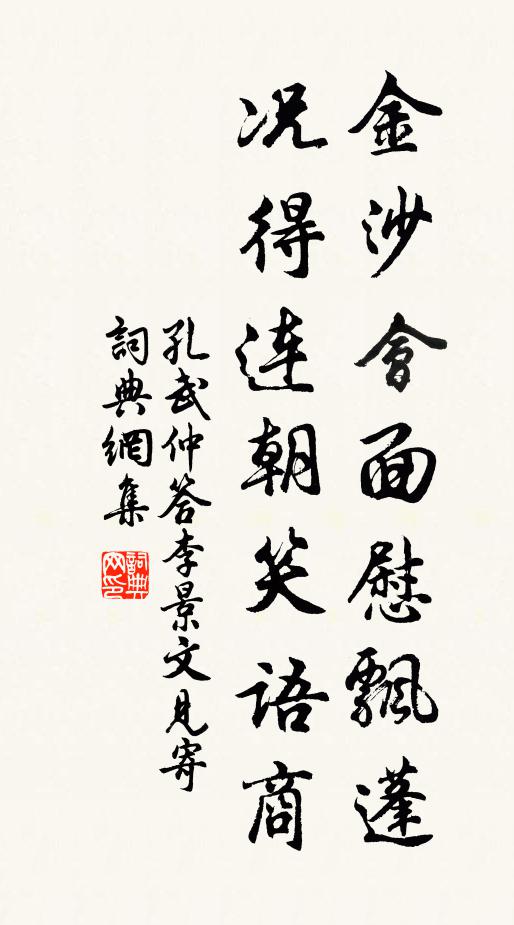 金沙會面慰飄蓬
况得連朝笑語商
孔武仲答李景文見寄
詞典網集
詞典網印